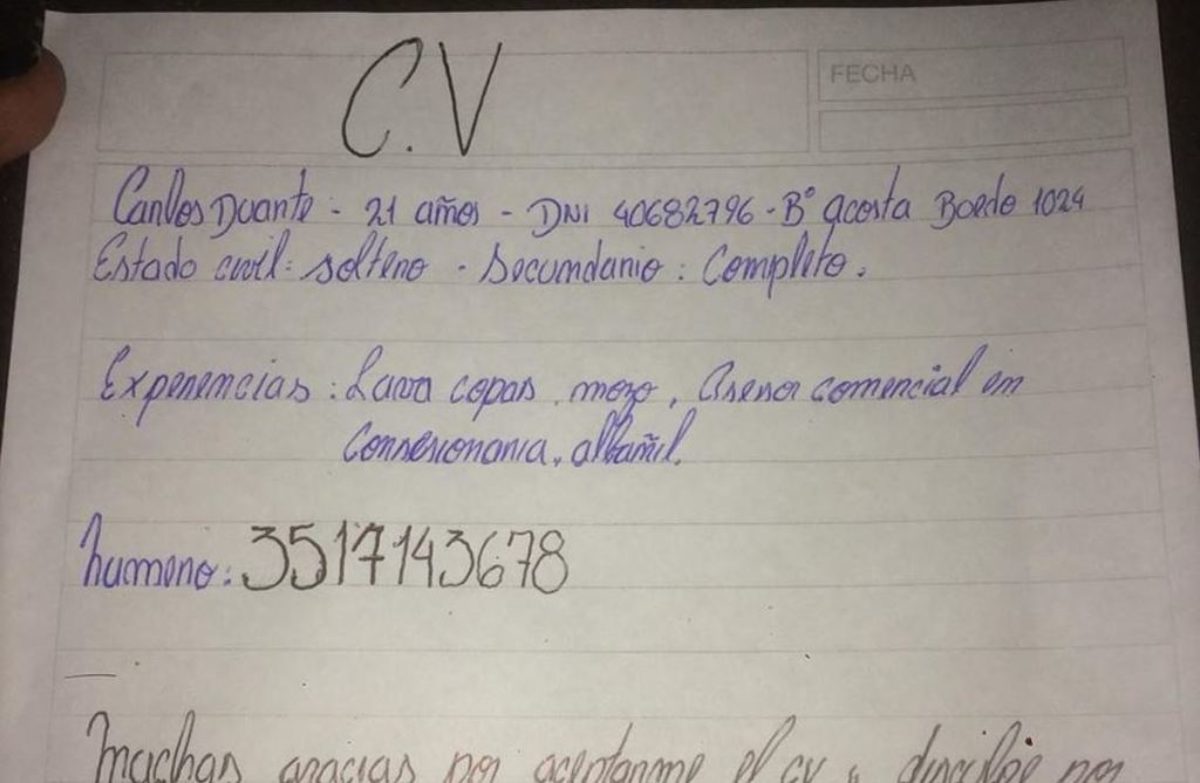 C.V
FECHA
Carlos Duarte - 21 años - DNI 40682796 - B° acosta Boedo 1024
Estado civil: soltero - Secundario: Completo.
Experiencias: Lava copas, mozo, Asesor comercial en
Consesionaria, albañil.
numero: 3517143678
muchas gracias por aceptarme el cv y disculpe por